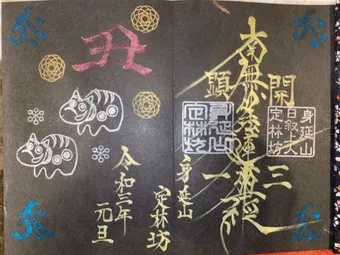 開三
身延山
定林坊
南無妙法蓮華経
顕一
身延山
定林坊
身延山
定林坊
令和三年
元旦
丑